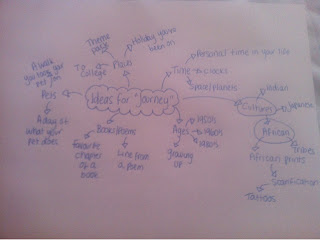 Holiday you've
been on
Theme
parks
Places
To
College
A walk
you take your
pet on
Pets
A day at
what your
pet does
Ideas for "Journey"
Personal time in your life
Time
clocks
Space/Planets
Cultures
Indian
Japanese
African
Tribes
African prints
Scarification
Tattoos
Ages
1950s
1960s
1980s
growing
up
Books/Poems
favourite
chapter
of a
book
Line from
a poem